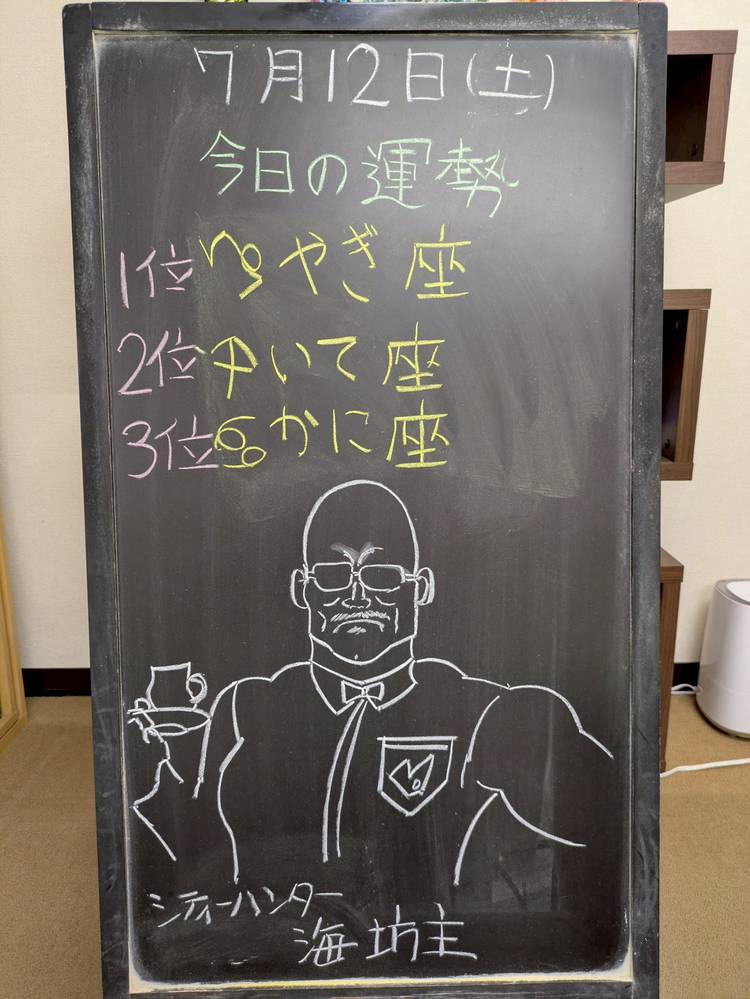 7月12日(土)
今日の運勢
1位♑やぎ座
2位♐いて座
3位♋かに座
シティーハンター
海坊主